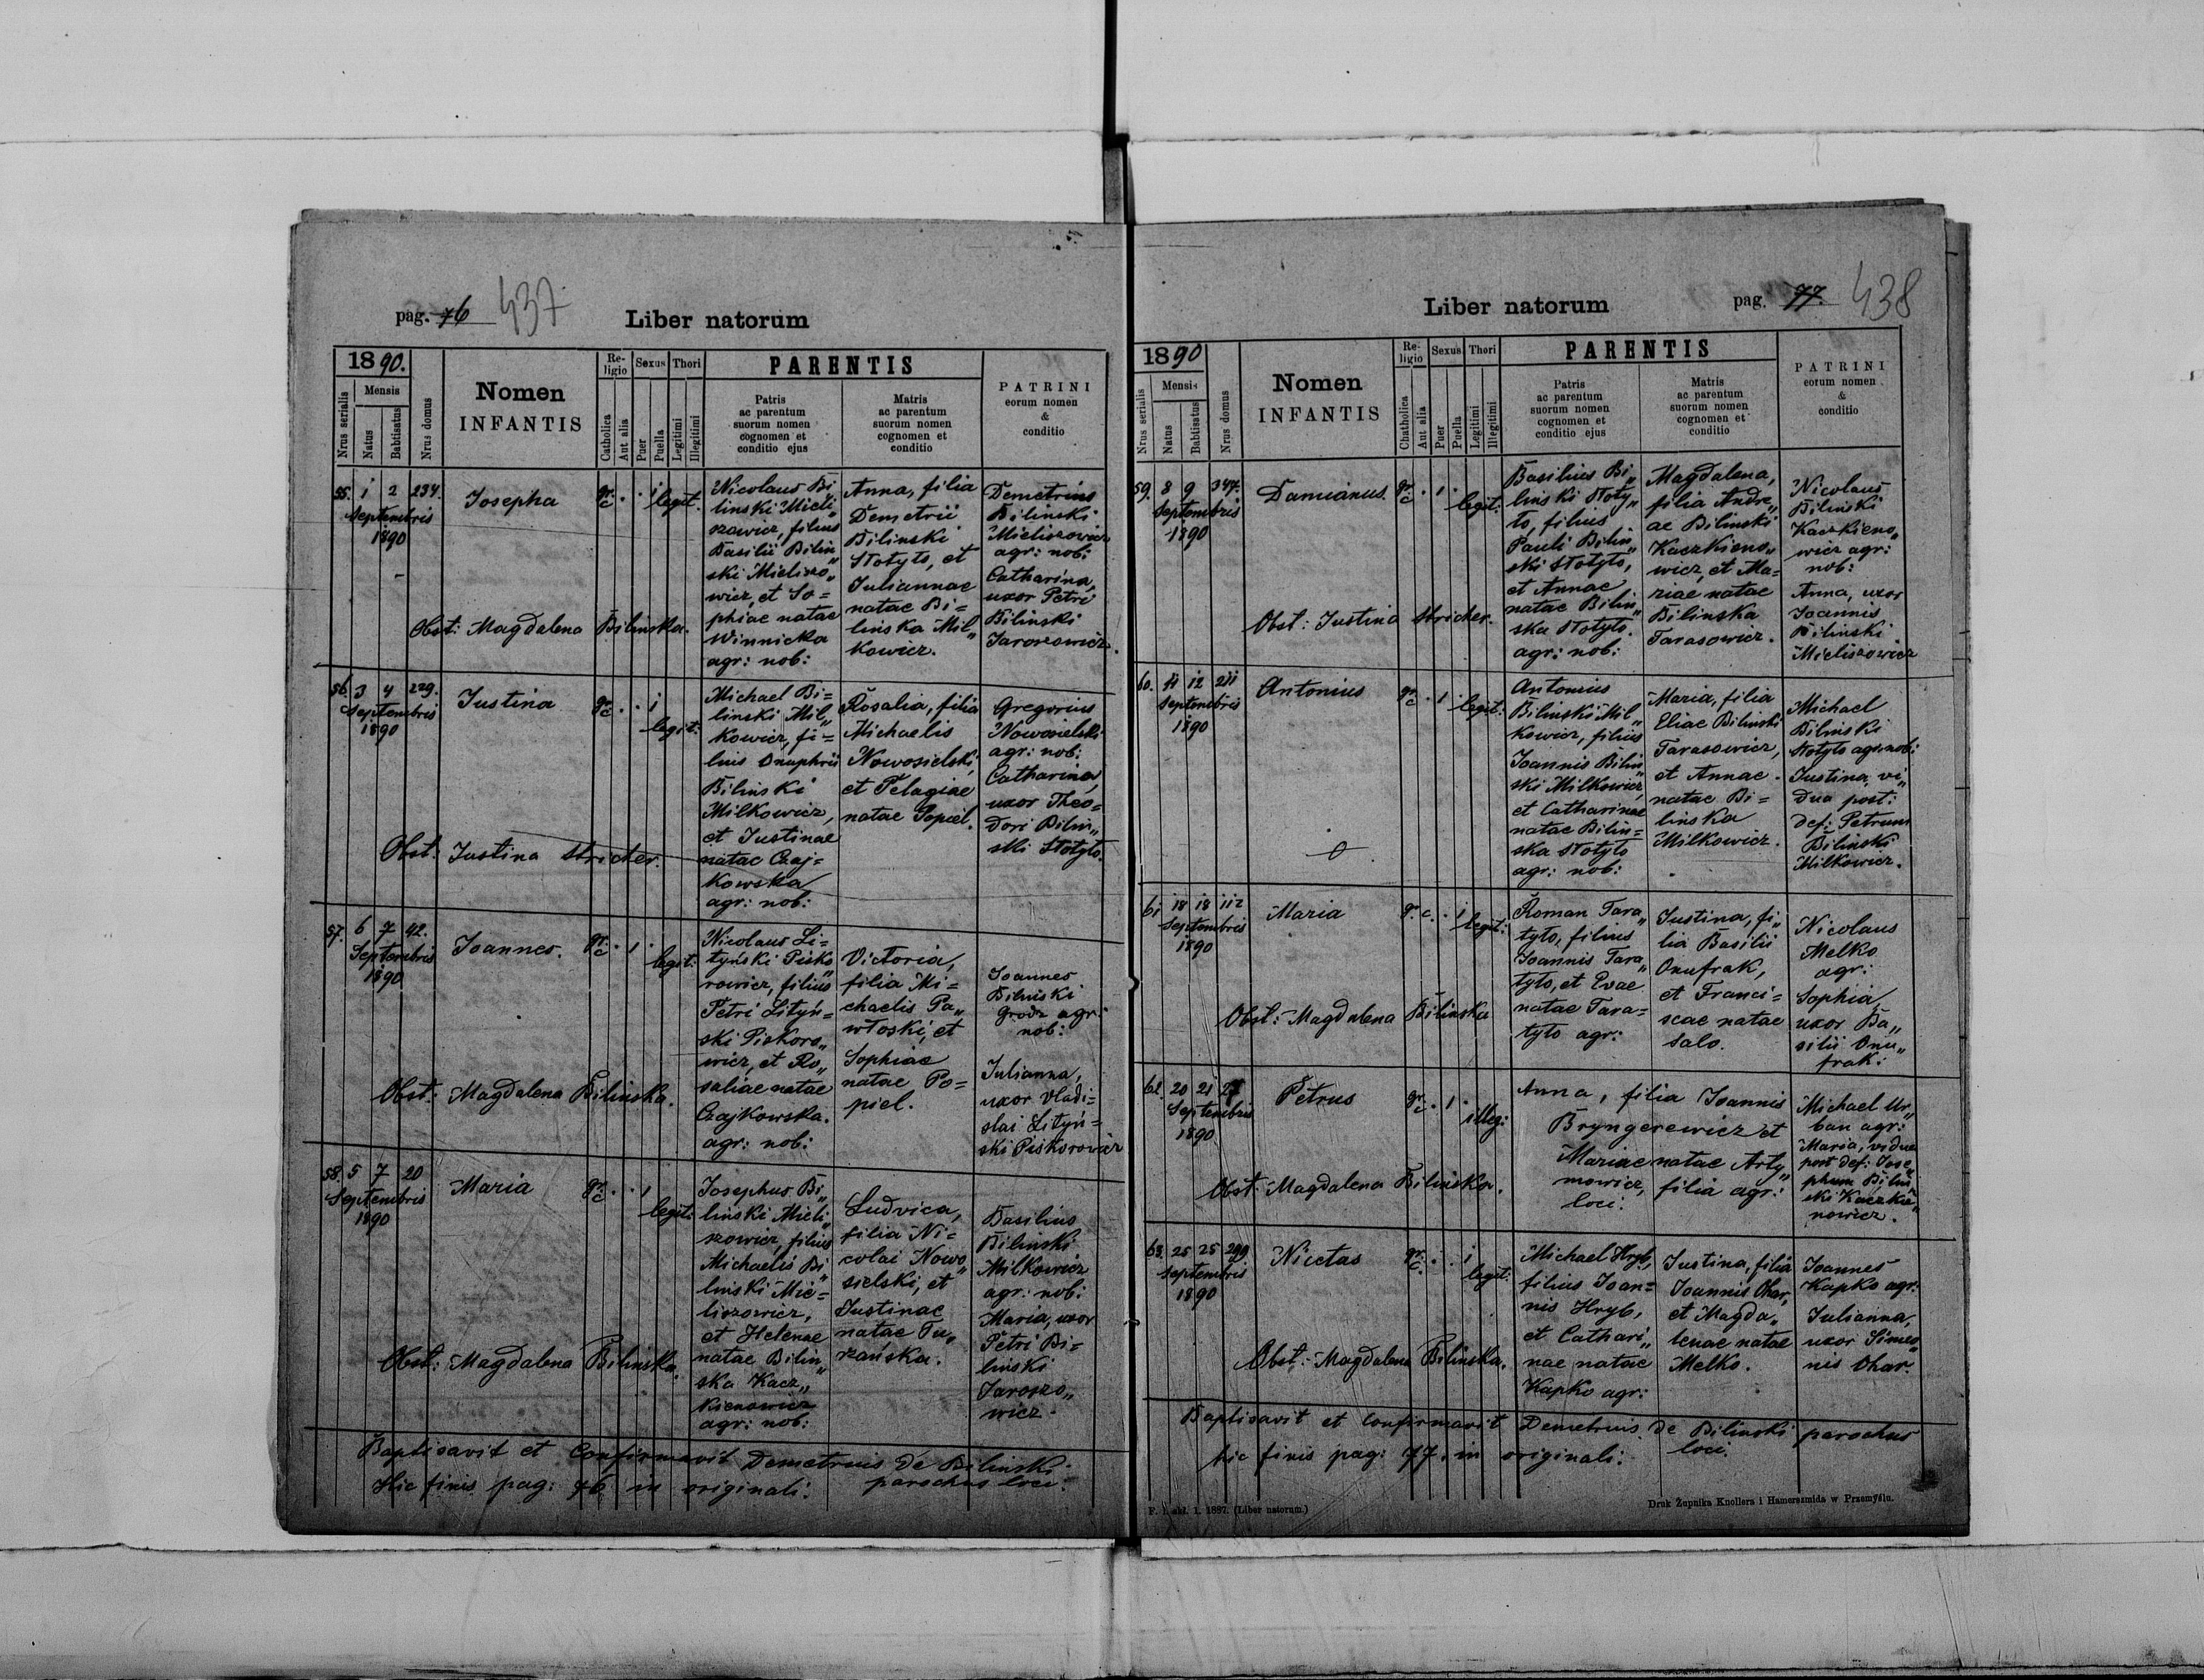 pag. 76 437
Liber natorum
1890.
Nrus serialis
Mensis
Natus
Babtisatus
Nrus domus
Nomen
INFANTIS
Re-
ligio
Catholica
Aut alia
Sexus
Puer
Puella
Thori
Legitimi
Illegitimi
PARENTIS
Patris
ac parentum
suorum nomen
cognomen et
conditio ejus
Matris
ac parentum
suorum nomen
cognomen et
conditio
PATRINI
eorum nomen
&
conditio
55. 1 2 234.
Septembris
1890
Josepha
gr. c. . . 1 legit.
Nicolaus Bi„
linski Mieli„
szowicz, filius
Basilii Bilin„
ski Mieliszo„
wicz, et So=
phiae natae
Winnicka
agr: nob:
Anna, filia
Demetrii
Bilinski
Stotyto, et
Juliannae
natae Bi=
linska Mil„
kowicz.
Demetrius
Bilinski
Mieliszowicz
agr: nob:
Catharina,
uxor Petri
Bilinski
Jaroszowicz.
Obst: Magdalena Bilinska.
56. 3 4 229.
Septembris
1890
Justina
gr. c. . . 1
legit:
Michael Bi=
linski Mil„
kowicz, fi=
lius Onuphrii
Bilinski
Milkowicz,
et Justinae
natae Czaj=
kowska
agr: nob:
Rosalia, filia
Michaelis
Nowosielski,
et Pelagiae
natae Popiel.
Gregorius
Nowosielski
agr: nob:
Catharina,
uxor Theo=
dori Bilin„
ski Stotyto.
Obst: Justina Stricher.
57. 6 7 42.
Septembris
1890
Joannes.
gr. c. . 1 .
legit:
Nicolaus Li=
tyński Pisko„
rowicz, filius
Petri Lityń=
ski Piskoro„
wicz, et Ro„
saliae natae
Czajkowska.
agr: nob:
Victoria,
filia Mi=
chaelis Pa„
włoski, et
Sophiae
natae Po=
piel.
Joannes
Bilinski
Grodz agr:
nob:
Julianna,
uxor Vladi=
slai Lityń=
ski Piskorowicz
Obst: Magdalena Bilinska.
58. 5 7 20
Septembris
1890
Maria
gr. c. . . 1
legit:
Josephus Bi„
linski Mieli„
szowicz, filius
Michaelis Bi„
linski Mie=
liszowicz,
et Helenae
natae Bilin„
ska Kacz„
kienowicz
agr: nob:
Ludvica,
filia Ni=
colai Nowo„
sielski, et
Justinae
natae Tu„
rzańska.
Basilius
Bilinski
Milkowicz
agr: nob:
Maria, uxor
Petri Bi=
linski
Jaroszo„
wicz.
Obst: Magdalena Bilinska.
Baptisavit et Confirmavit Demetrius de Bilinski
parochus loci.
Hic finis pag: 76 in originali.
Liber natorum
pag. 77. 438
1890
Nrus serialis
Mensis
Natus
Babtisatus
Nrus domus
Nomen
INFANTIS
Re-
ligio
Chatholica
Aut alia
Sexus
Puer
Puella
Thori
Legitimi
Illegitimi
PARENTIS
Patris
ac parentum
suorum nomen
cognomen et
conditio ejus
Matris
ac parentum
suorum nomen
cognomen et
conditio
PATRINI
eorum nomen
&
conditio
59. 8 9 347.
Septembris
1890
Damianus.
gr. c. . 1 .
legit:
Basilius Bi„
linski Stoty„
to, filius
Pauli Bilin„
ski Stotyto,
et Annae
natae Bilin„
ska Stotyto.
agr: nob:
Magdalena,
filia Andre„
ae Bilinski
Kaczkieno„
wicz, et Ma=
riae natae
Bilinska
Tarasowicz.
Nicolaus
Bilinski
Kaczkieno„
wicz agr:
nob:
Anna, uxor
Joannis
Bilinski
Mieliszowicz
Obst: Justina Stricher.
60. 11 12 211
Septembris
1890
Antonius
gr. c. . 1 . legit:
Antonius
Bilinski Mil„
kowicz, filius
Joannis Bilin„
ski Milkowicz,
et Catharinae
natae Bilin=
ska Stotyto
agr: nob:
Maria, filia
Eliae Bilinski
Tarasowicz,
et Annae
natae Bi=
linska
Milkowicz.
Michael
Bilinski
Stotyto agr: nob:
Justina, vi„
dua post:
def: Petrum
Bilinski
Milkowicz.
61 18 18 112
Septembris
1890
Maria
gr. c. . 1
legit:
Roman Tara„
tyto, filius
Joannis Tara„
tyto, et Evae
natae Tara=
tyto agr:
Justina, fi„
lia Basilii
Onufrak,
et Franci=
scae natae
Salo.
Nicolaus
Melko
agr:
Sophia,
uxor Ba„
silii Onu„
frak:
Obst: Magdalena Bilinska
62. 20 21 27
Septembris
1890
Petrus
gr. c. . 1 .
illeg:
Anna, filia Joannis
Bryngerewicz et
Mariae natae Arty„
mowicz, filia agr:
loci.
Michael Ur„
ban agr:
Maria, vidua
post def: Jose„
phum Bilin„
ski Kaczkie„
nowicz.
Obst: Magdalena Bilinska.
63. 25 25 299.
Septembris
1890
Nicetas
gr. c. . . 1
legit:
Michael Hryb,
filius Joan=
nis Hryb,
et Cathari„
nae natae
Kapko agr:
Justina, filia
Joannis Ohar,
et Magda„
lenae natae
Melko.
Joannes
Kapko agr:
Julianna,
uxor Simeo„
nis Ohar.
Obst: Magdalena Bilinska.
Baptisavit et Confirmavit Demetrius de Bilinski parochus
loci.
hic finis pag: 77. in originali.
1887. (Liber natorum.)
Druk Żupnika Knollera i Hamerszmida w Przemyślu.